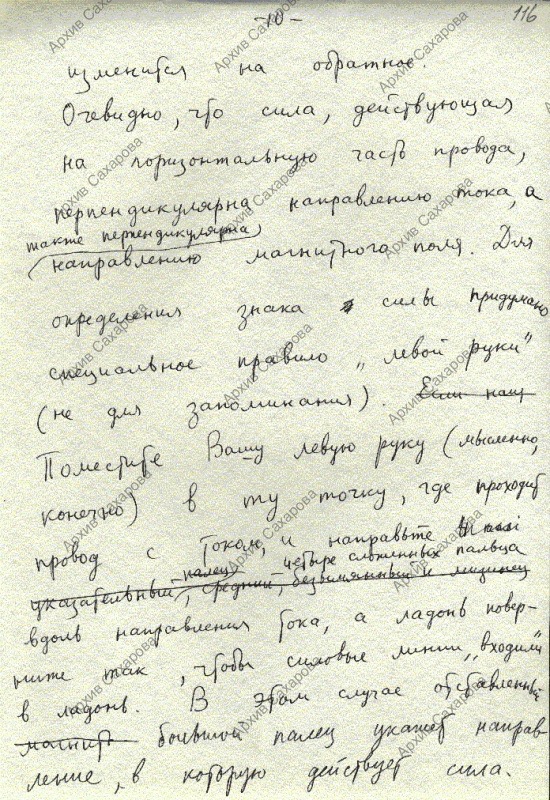 -10-
116
изменится на обратное.
Очевидно, что сила, действующая
на горизонтальную часть провода,
перпендикулярна направлению тока, а
также перпендикулярна
направлению магнитного поля. Для
определения знака силы придумано
специальное правило „левой руки"
(не для запоминания). Если наш
Поместите Вашу левую руку (мысленно,
конечно) в ту точку, где проходит
провод с током, и направьте
четыре сложенных пальца
указательный палец, средний, безымянный и мизинец
вдоль направления тока, а ладонь повер-
ните так, чтобы силовые линии „входили"
в ладонь. В этом случае отставленный
магнит большой палец укажет направ-
ление, в которую действует сила.
Архив Сахарова